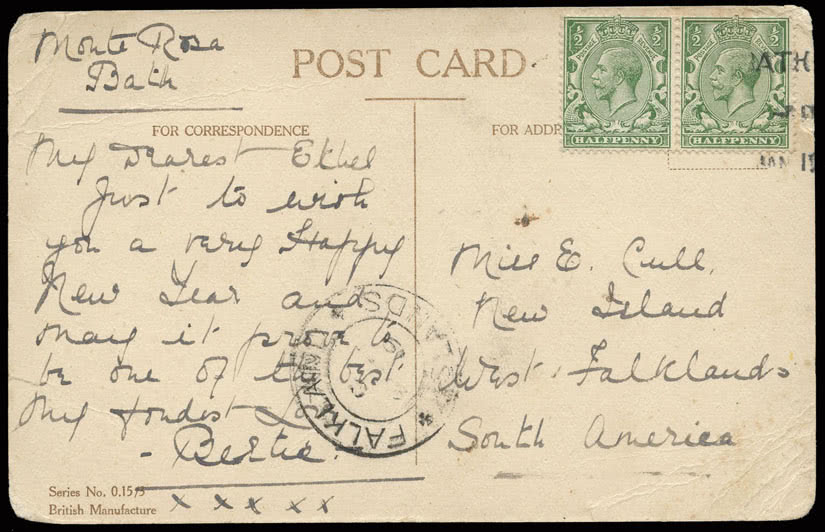 Monte Rosa
Bath
POST CARD
FOR CORRESPONDENCE
My Dearest Ethel
Just to wish
you a very Happy
New Year and
may it prove to
be one of the best
My fondest
- Bertie.
x x x x x
Series No. 0.15/5
British Manufacture
FOR ADDR
½ ½
POSTAGE REVENUE
HALFPENNY
½ ½
POSTAGE REVENUE
HALFPENNY
ATH
JAN 1
Miss E. Cull,
New Island
West Falklands
South America
FALKLAND ISLANDS